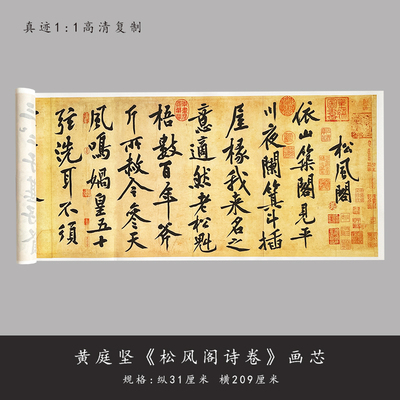 真迹1:1高清复制
松風閣
依山築閣見平
川夜闌箕斗插
屋椽我來名之
意適然老松魁
梧數百年斧
斤所赦今參天
風鳴媧皇五十
弦洗耳不須
黄庭坚《松风阁诗卷》画芯
规格:纵31厘米 横209厘米